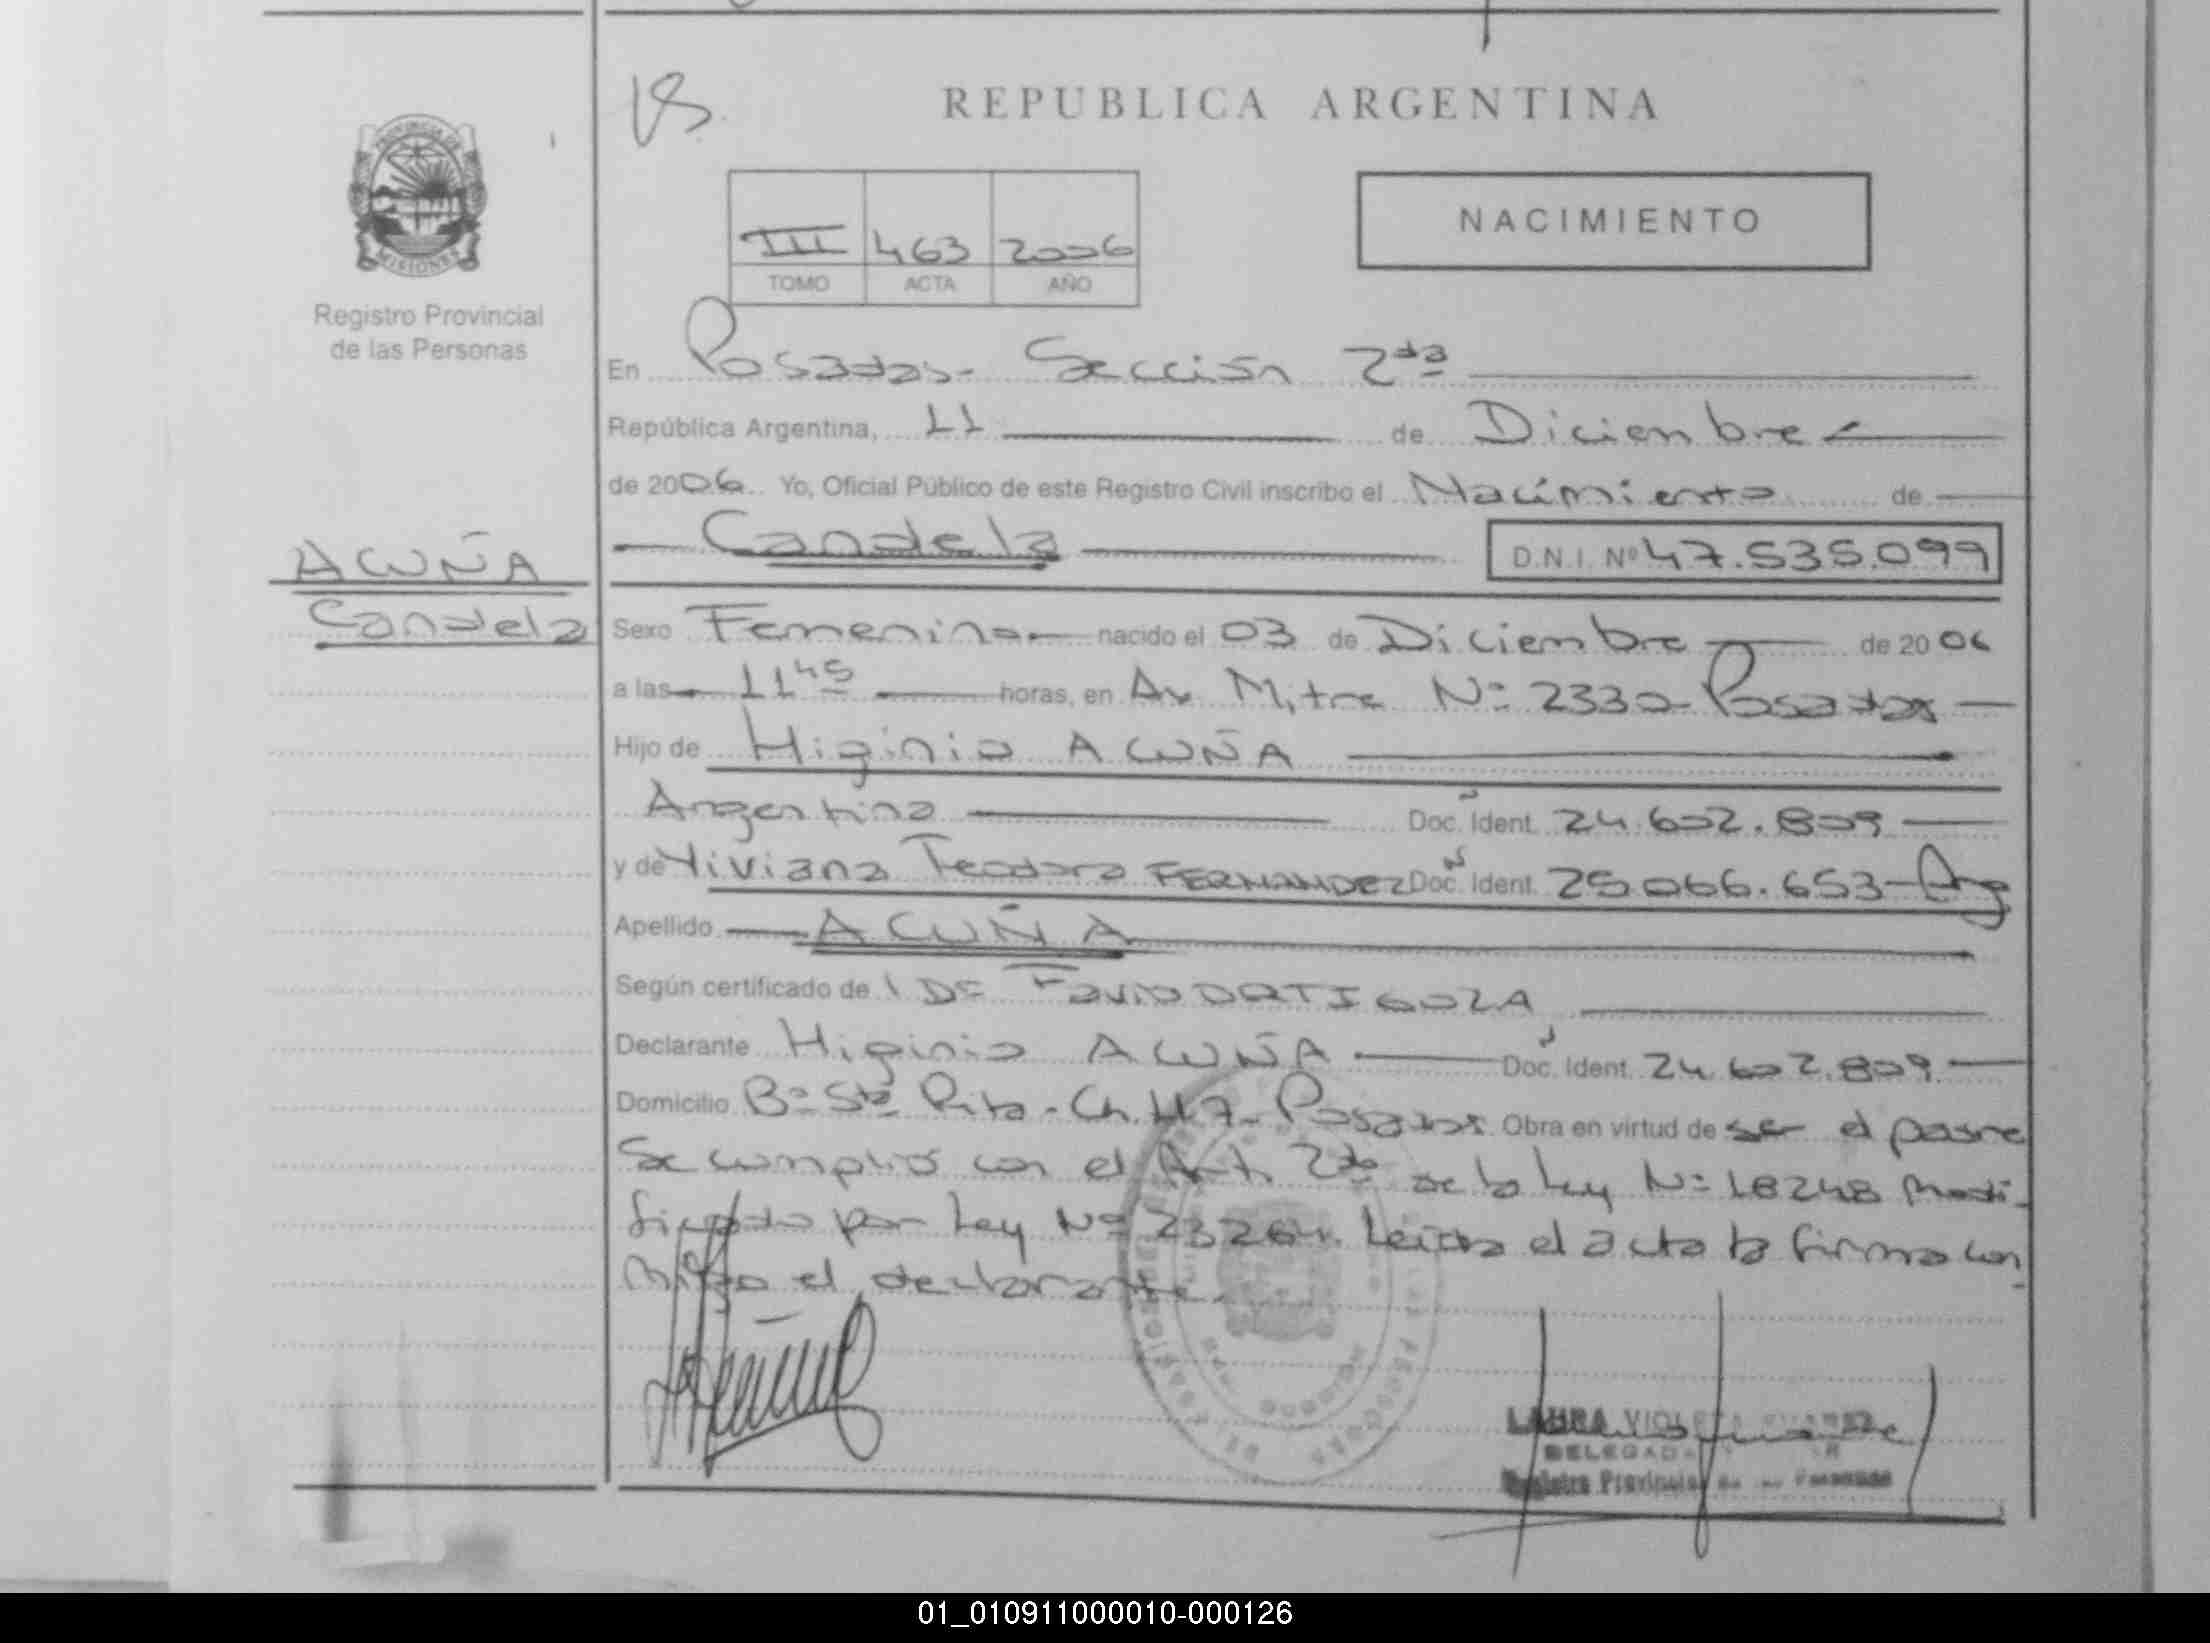 REPUBLICA ARGENTINA
PROVINCIA DE
MISIONES
Registro Provincial
de las Personas
III 463 2006
TOMO ACTA AÑO
NACIMIENTO
En Posadas - Sección 2da
República Argentina, 11 de Diciembre
de 2006 Yo, Oficial Público de este Registro Civil inscribo el Nacimiento de
Candela D.N.I. Nº 47.535.099
ACUÑA
Candela
Sexo Femenino nacido el 03 de Diciembre de 2006
a las 11 45 horas, en Av. Mitre Nº 2330 - Posadas
Hijo de Higinio ACUÑA
Argentino Doc. Ident. 24.602.809
y de Viviana Teodora FERNANDEZ Doc. Ident. 25.066.653 - Arg
Apellido ACUÑA
Según certificado de
Declarante Higinio ACUÑA Doc. Ident. 24.602.809
Domicilio Bº Sta Rita - Ch. 117 - Posadas Obra en virtud de ser el padre
Se cumplió con el Art. 2do de la Ley Nº 18248 modi-
ficado por Ley Nº 23264. Leída el acta la firma con
migo el declarante.
LAURA VIOLETA
DELEGADA
Registro Provincial de las Personas
01_010911000010-000126